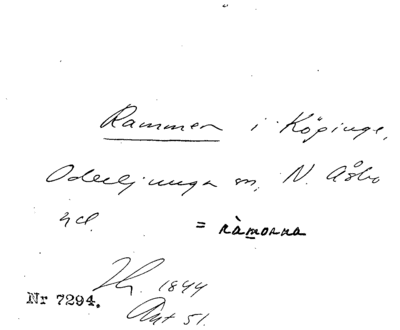 Rammen i Köpinge,
Oderljunga sn, N. Åsbo
hd. = ràmorna
1844
Nr 7294.
Ant 51.